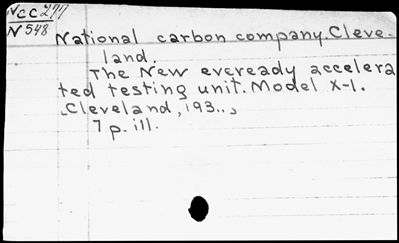 NCC277
N548
National carbon company. Cleve-
land.
The New eveready accelera
ted testing unit. Model X-1.
[Cleveland, 193..]
7 p. ill.